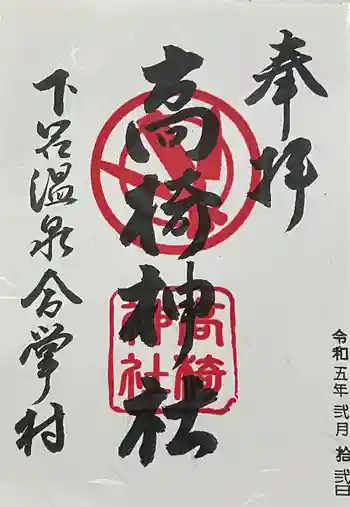 奉拝
高椅神社
高椅神社
下呂温泉合掌村
令和五年 弐月 拾弐日